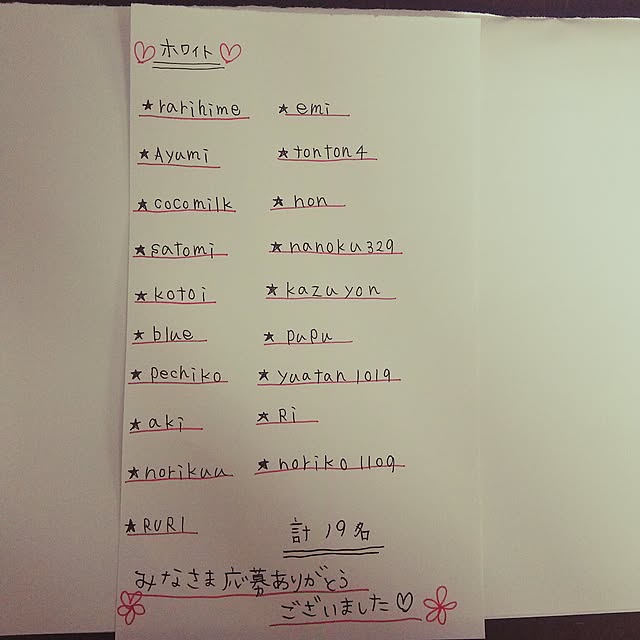 ♡ホワイト♡
★rarihime ★emi
★Ayumi ★tonton4
★cocomilk ★non
★satomi ★nanoku329
★kotoi ★kazuyon
★blue ★pupu
★pechiko ★yuatan1019
★aki ★Ri
★norikuu ★noriko1109
★RURI 計19名
みなさま応募ありがとう
ございました♡